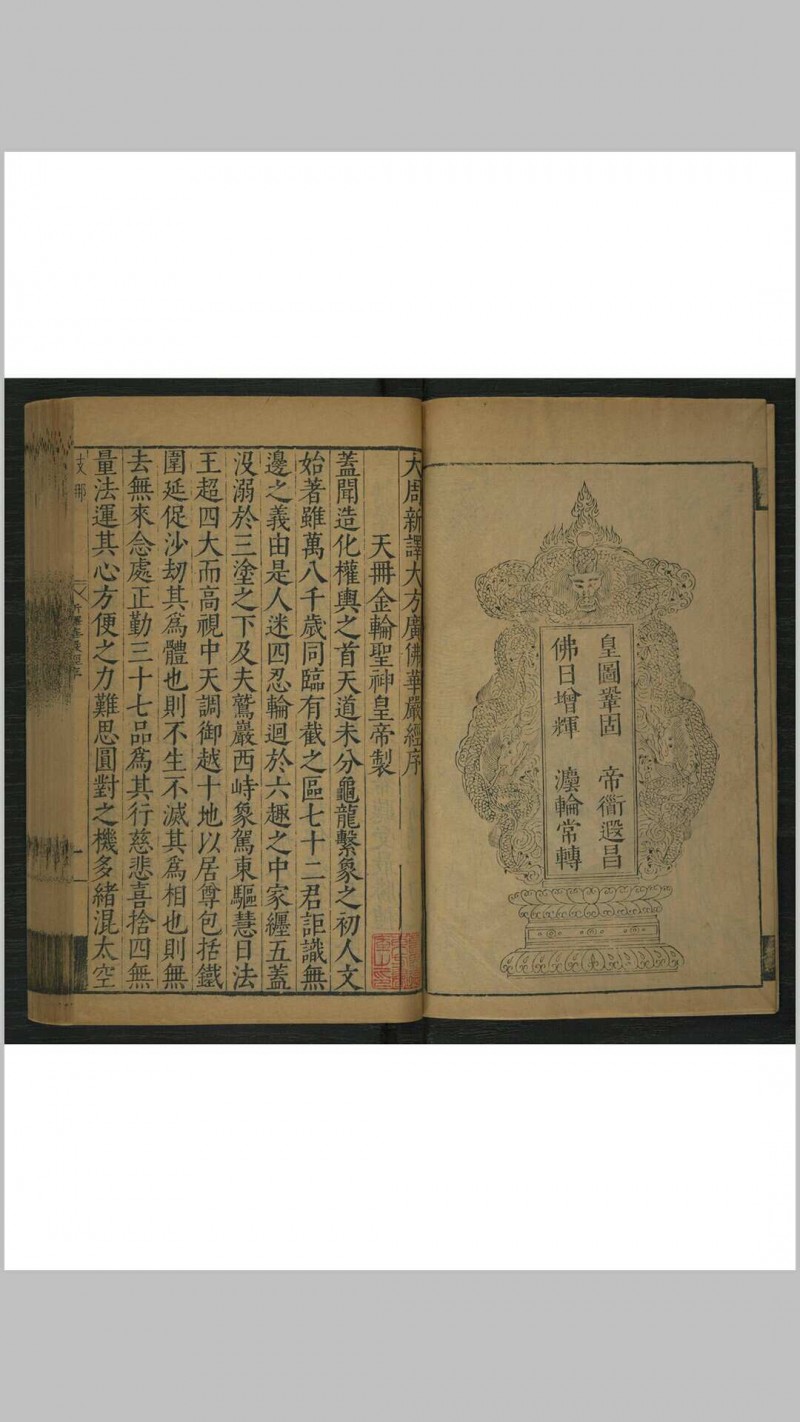 皇圖鞏固 帝衜遐昌
佛日增輝 灋輪常轉
大周新譯大方廣佛華嚴經序
天冊金輪聖神皇帝製
蓋聞造化權輿之首天道未分龜龍繫象之初人文
始著雖萬八千歲同臨有截之區七十二君詎識無
邊之義由是人迷四忍輪迴於六趣之中家纏五蓋
沒溺於三塗之下及夫鷲巖西峙象駕東驅慧日法
王超四大而高視中天調御越十地以居尊包括鐵
圍延促沙劫其爲體也則不生不滅其爲相也則無
去無來念處正勤三十七品爲其行慈悲喜捨四無
量法運其心方便之力難思圓對之機多緒混太空